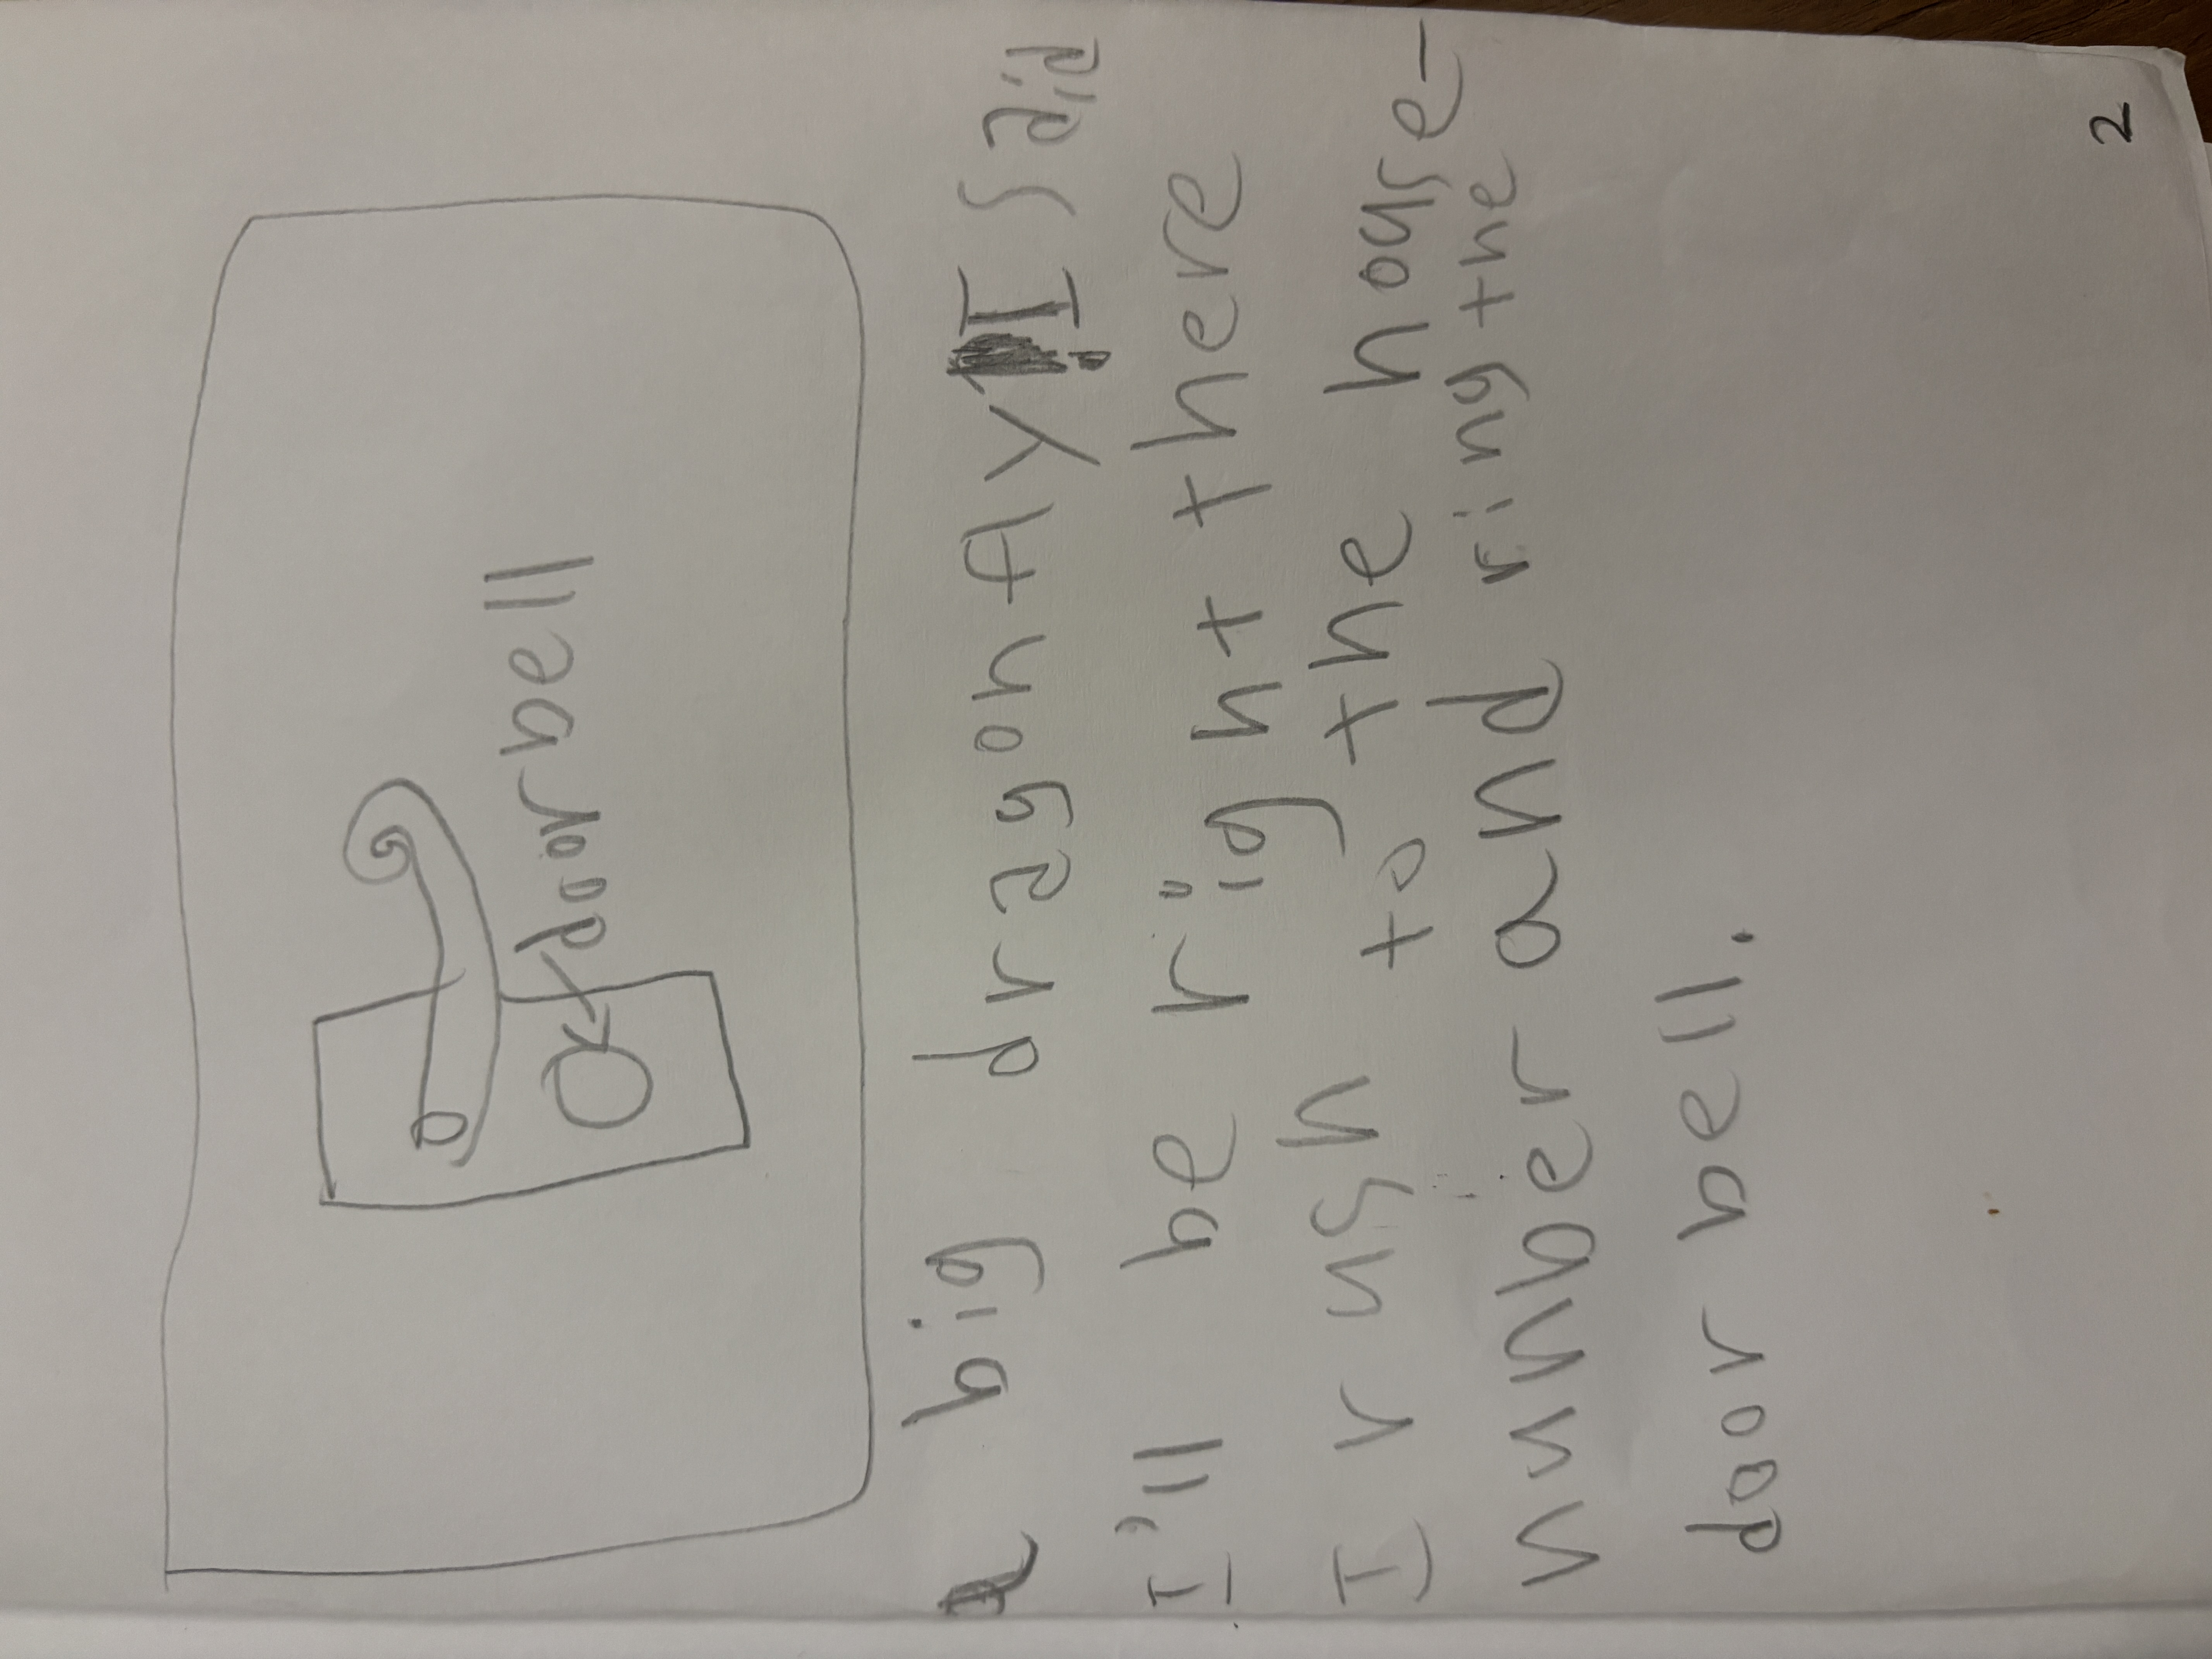 door bell
a big dragonfly! I said
I'll be right there
I rush to the house-
nunber and ring the
door bell.
2